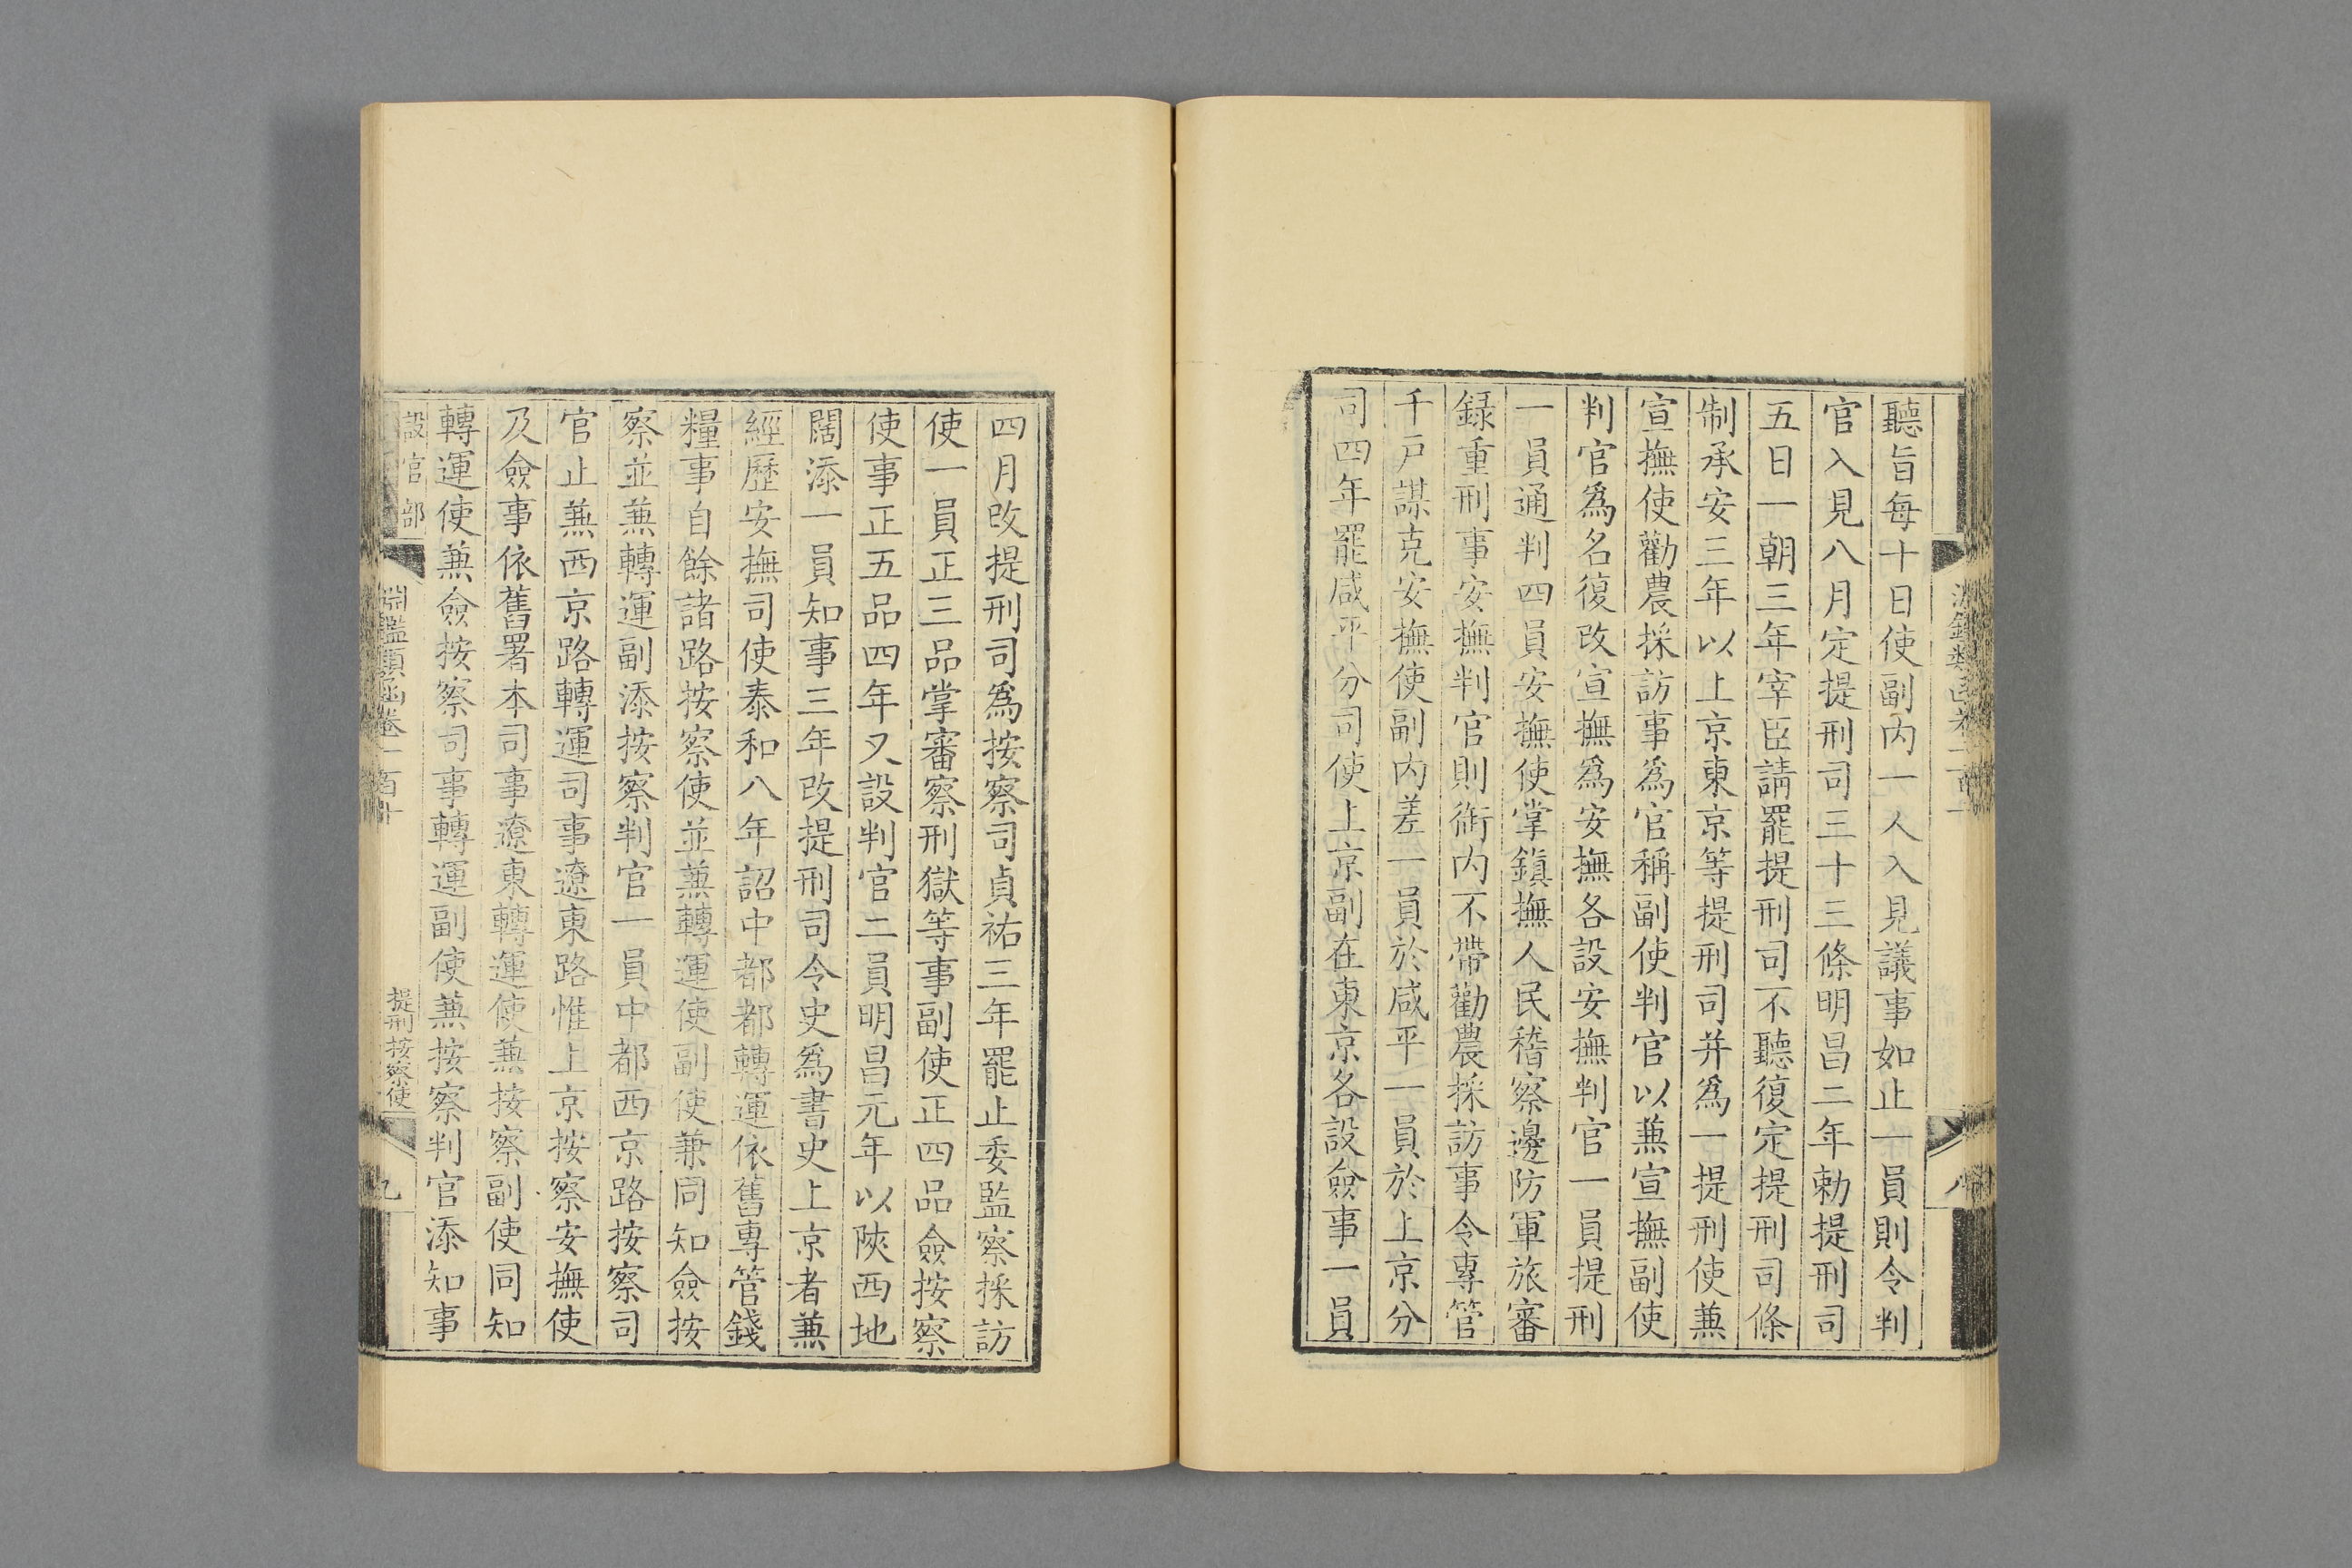 聽旨每十日使副內一人入見議事如止一員則令判
官入見八月定提刑司三十三條明昌二年勅提刑司
五日一朝三年宰臣請罷提刑司不聽復定提刑司條
制承安三年以上京東京等提刑司并爲一提刑使兼
宣撫使勸農採訪事爲官稱副使判官以兼宣撫副使
判官爲名復改宣撫爲安撫各設安撫判官一員提刑
一員通判四員安撫使掌鎮撫人民稽察邊防軍旅審
録重刑事安撫判官則銜内不帶勸農採訪事令專管
千戸謀克安撫使副內差一員於咸平一員於上京分
司四年罷咸平分司使上京副在東京各設僉事一員
四月改提刑司爲按察司貞祐三年罷止委監察採訪
使一員正三品掌審察刑獄等事副使正四品僉按察
使事正五品四年又設判官二員明昌元年以陝西地
闊添一員知事三年改提刑司令史爲書史上京者兼
經歷安撫司使泰和八年詔中都都轉運依舊專管錢
糧事自餘諸路按察使並兼轉運使副使兼同知僉按
察並兼轉運副添按察判官一員中都西京路按察司
官止兼西京路轉運司事遼東路惟上京按察安撫使
及僉事依舊署本司事遼東轉運使兼按察副使同知
轉運使兼僉按察司事轉運副使兼按察判官添知事
設官部
淵鑑類函卷一百十
提刑按察使
九